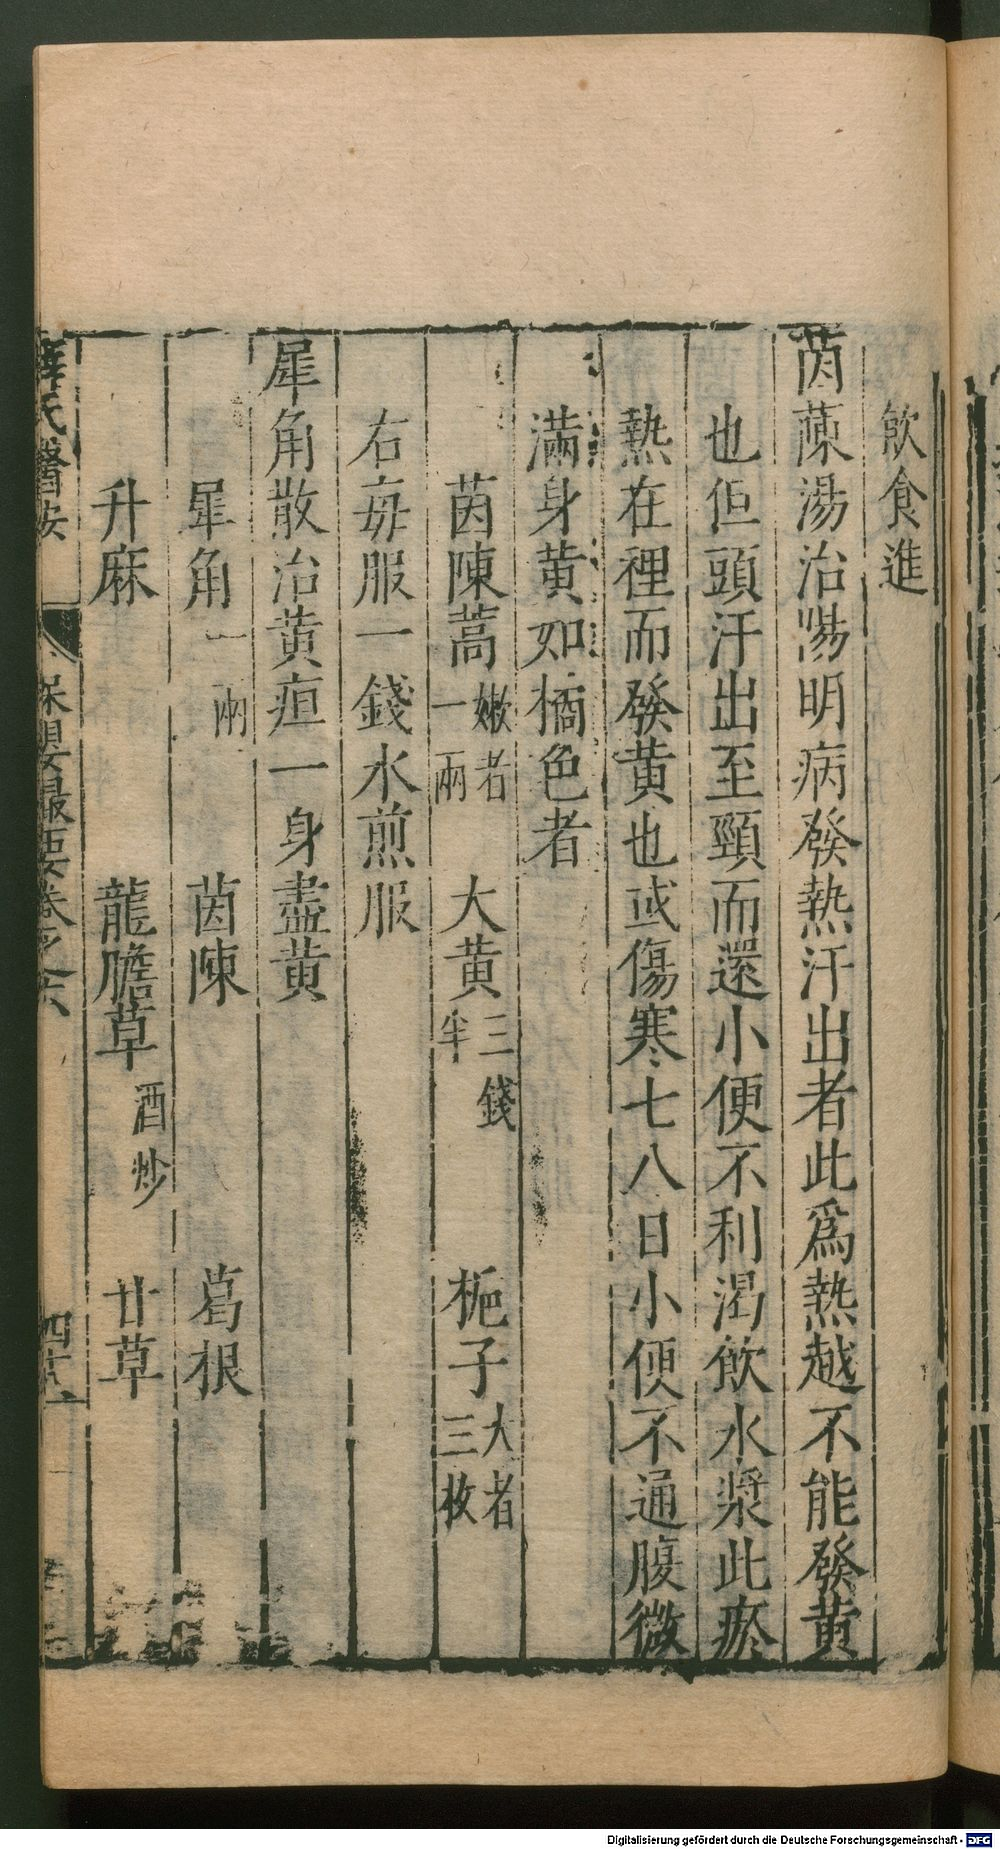 飲食進
茵蔯湯治陽明病發熱汗出者此爲熱越不能發黃
也但頭汗出至頸而還小便不利渴飲水漿此瘀
熱在裡而發黃也或傷寒七八日小便不通腹微
滿身黃如橘色者
茵蔯蒿嫩者一兩 大黃三錢半 梔子大者三枚
右每服一錢水煎服
犀角散治黃疸一身盡黃
犀角一兩 茵蔯 葛根
升麻 龍膽草酒炒 甘草
薛氏醫按 保嬰撮要卷之六
Digitalisierung gefördert durch die Deutsche Forschungsgemeinschaft - DFG